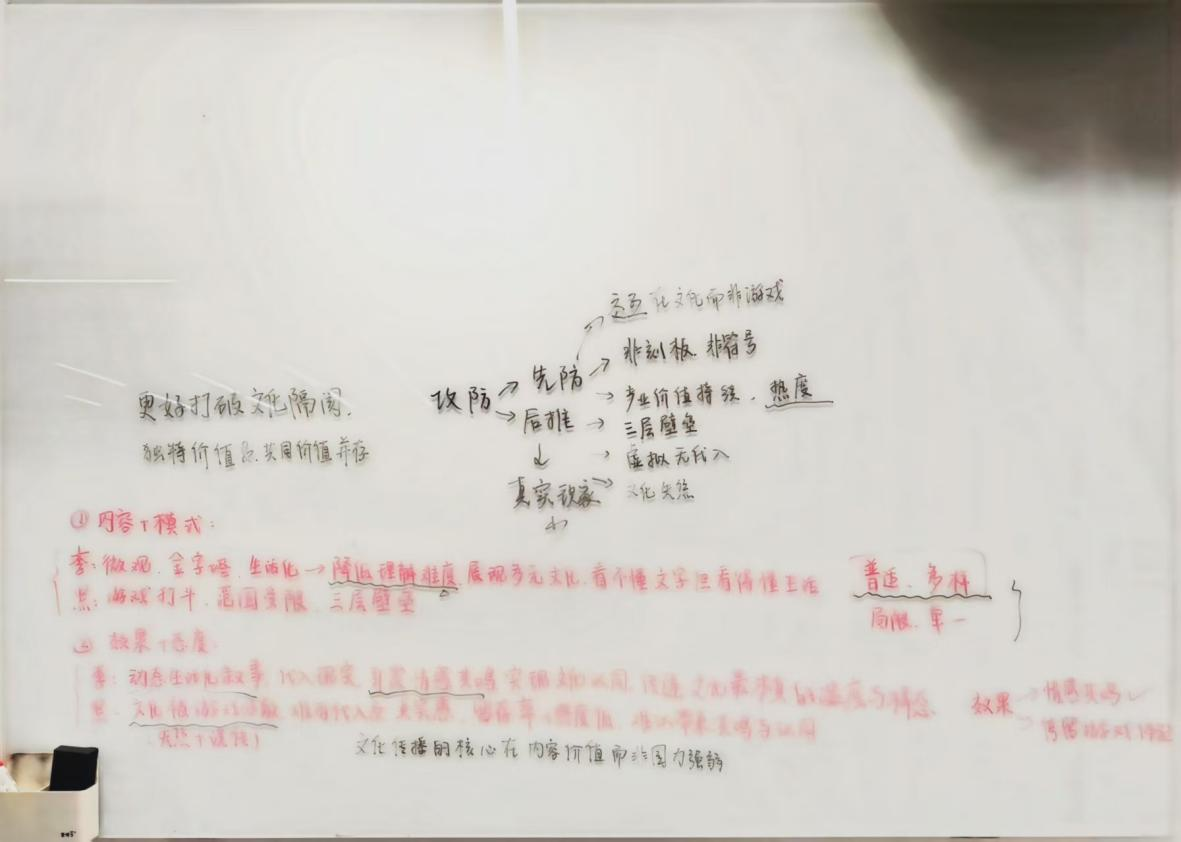 交互 化文化而非游戏
非刻板、非符号
更好打破文化隔阂.
攻防 → 先防
产业价值持续、热度
→ 后推 → 三层壁垒
独特价值 共同价值并存
→ 虚拟无代入
真实
文化失
① 内容+模式:
李: 微观、金字塔、生活化 → 降低理解难度、展现多元文化、看不懂文字但看得懂生活
黑: 游戏打斗、范围受限、三层壁垒
普适、多样
局限、单一
② 效果+态度:
李: 动态生活化叙事, 代入 引发情感共鸣 实现 认同, 文化最本真的温度与
黑: 文化 难有代入 真实感, 留存率、热度低, 难以带来共鸣与认同
效果 → 情感共鸣
文化传播的核心在内容价值而非国力强弱